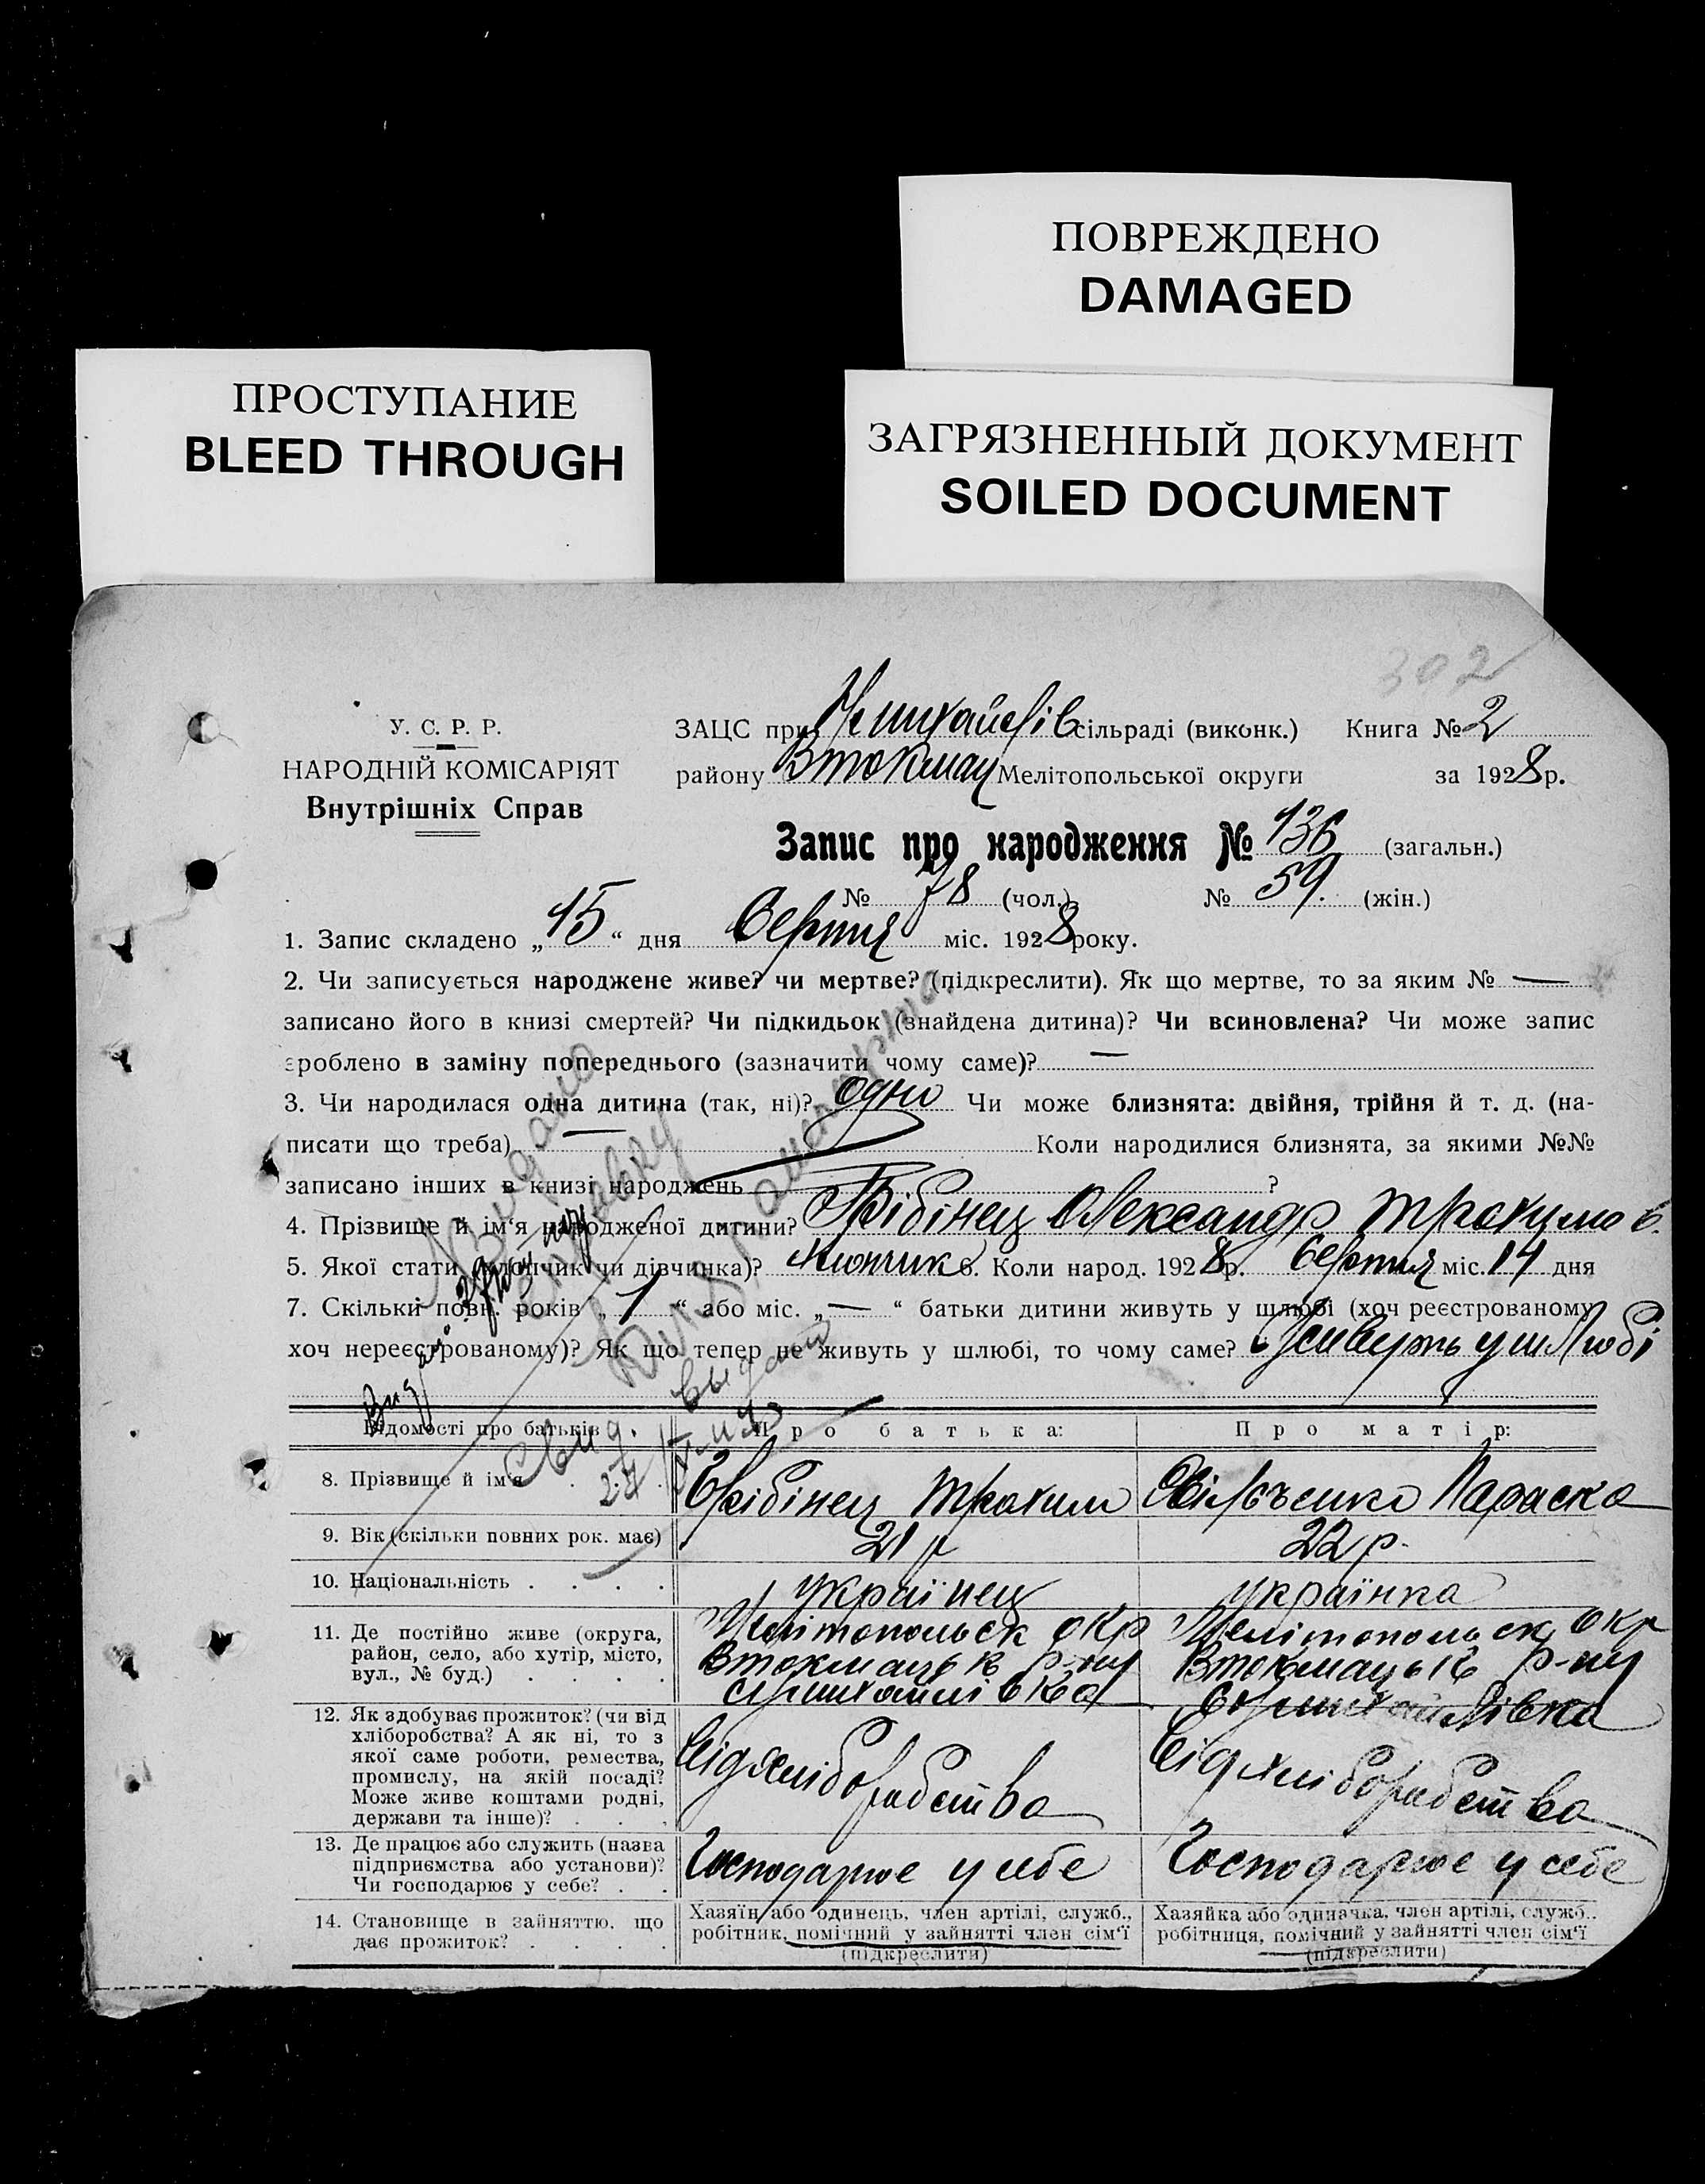 ПОВРЕЖДЕНО
DAMAGED
ПРОСТУПАНИЕ
BLEED THROUGH
ЗАГРЯЗНЕННЫЙ ДОКУМЕНТ
SOILED DOCUMENT
302
У. С. Р. Р.
НАРОДНІЙ КОМІСАРІЯТ
Внутрішніх Справ
ЗАЦС при сільраді (виконк.) Книга № 2
району Втокмац Мелітопольської округи за 1928 р.
Запис про народження № 136 (загальн.)
№ 78 (чол.) № 59. (жін.)
1. Запис складено „15“ дня Серпня міс. 1928 року.
2. Чи записується народжене живе? чи мертве? (підкреслити). Як що мертве, то за яким № —
записано його в книзі смертей? Чи підкидьок (знайдена дитина)? Чи всиновлена? Чи може запис
зроблено в заміну попереднього (зазначити чому саме)? —
3. Чи народилася одна дитина (так, ні)? одно Чи може близнята: двійня, трійня й т. д. (на-
писати що треба) — Коли народилися близнята, за якими №№
записано інших в книзі народжень ?
4. Прізвище й ім'я народженої дитини? Грібінец Олександр Трохимов.
5. Якої стати (хлопчик чи дівчинка)? Хлопчик 6. Коли народ. 1928 р. Серпня міс. 14 дня
7. Скільки повн. років „1“ або міс. „—“ батьки дитини живуть у шлюбі (хоч реєстрованому
хоч нереєстрованому)? Як що тепер не живуть у шлюбі, то чому саме? живуть у шлюбі
Відомості про батьків Про батька: Про матір:
8. Прізвище й ім'я Грібінец Трохим Параска
9. Вік (скільки повних рок. має) 21 р 22 р.
10. Національність українец українка
11. Де постійно живе (округа, Мелітопольск окр Мелітопольск окр
район, село, або хутір, місто, Втокмацьк р-ну Втокмацьк р-ну
вул., № буд.)
12. Як здобуває прожиток? (чи від
хліборобства? А як ні, то з
якої саме роботи, ремества, від хліборобства від хліборобства
промислу, на якій посаді?
Може живе коштами родні,
держави та інше)?
13. Де працює або служить (назва
підприємства або установи)? Господарює у себе Господарює у себе
Чи господарює у себе?
14. Становище в зайняттю, що Хазяїн або одинець, член артілі, служб., Хазяйка або одиначка, член артілі, служб.,
дає прожиток? робітник, помічний у зайнятті член сім'ї робітниця, помічний у зайнятті член сім'ї
(підкреслити) (підкреслити)